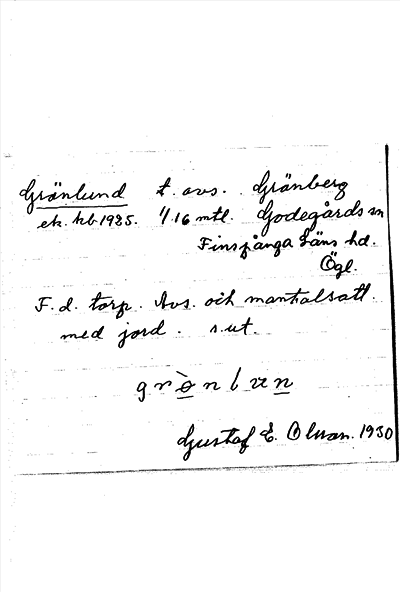 Grönlund t. avs. Grönberg
ek. kb 1925. 1/16 mtl. Godegårds sn
Finspånga Läns hd.
Ögl.
F. d. torp. Avs. och mantalsatt
med jord. s. ut.
Gustaf E. Olsson. 1930